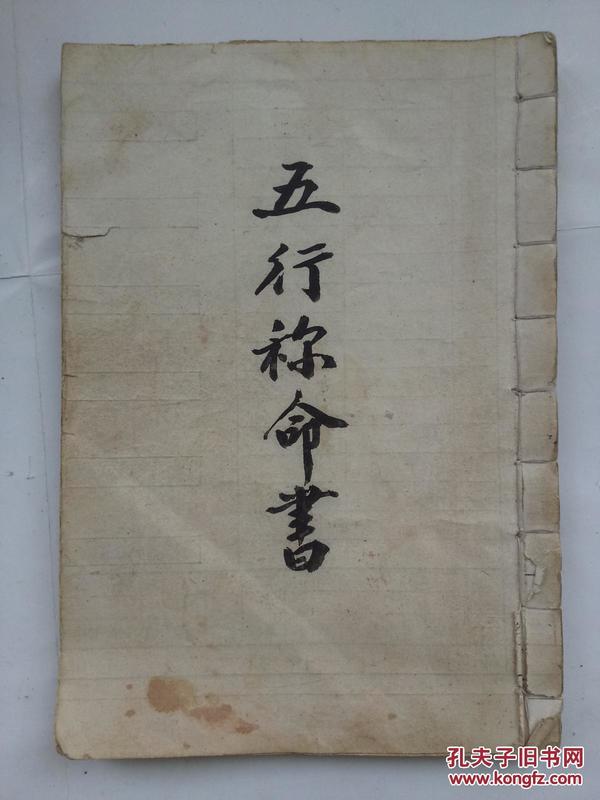 五行祢命書
孔夫子旧书网
www.kongfz.com